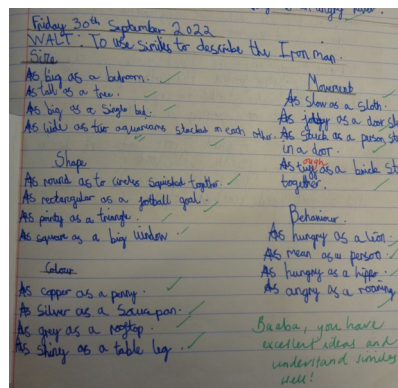 Friday 30th September 2022
WALT: To use similes to describe the Iron man.
Size
As big as a bedroom.
As tall as a tree.
As big as a single bed.
As wide as two aquariams stacked on each other.
Shape
As round as to circles squished togther.
As rectangular as a football goal.
As pointy as a triangle.
As square as a big window
Colour
As copper as a penny.
As silver as a saucepan.
As grey as a rooftop.
As shiny as a table leg.
Movement
As slow as a sloth.
As as a door
As stuck as a person
in a door.
ough
As as a brick
together.
Behaviour.
As hungry as a lion.
As mean as a person
As hungry as a hippo
As angry as a roaring
you have
excellent ideas and
understand similes
well!